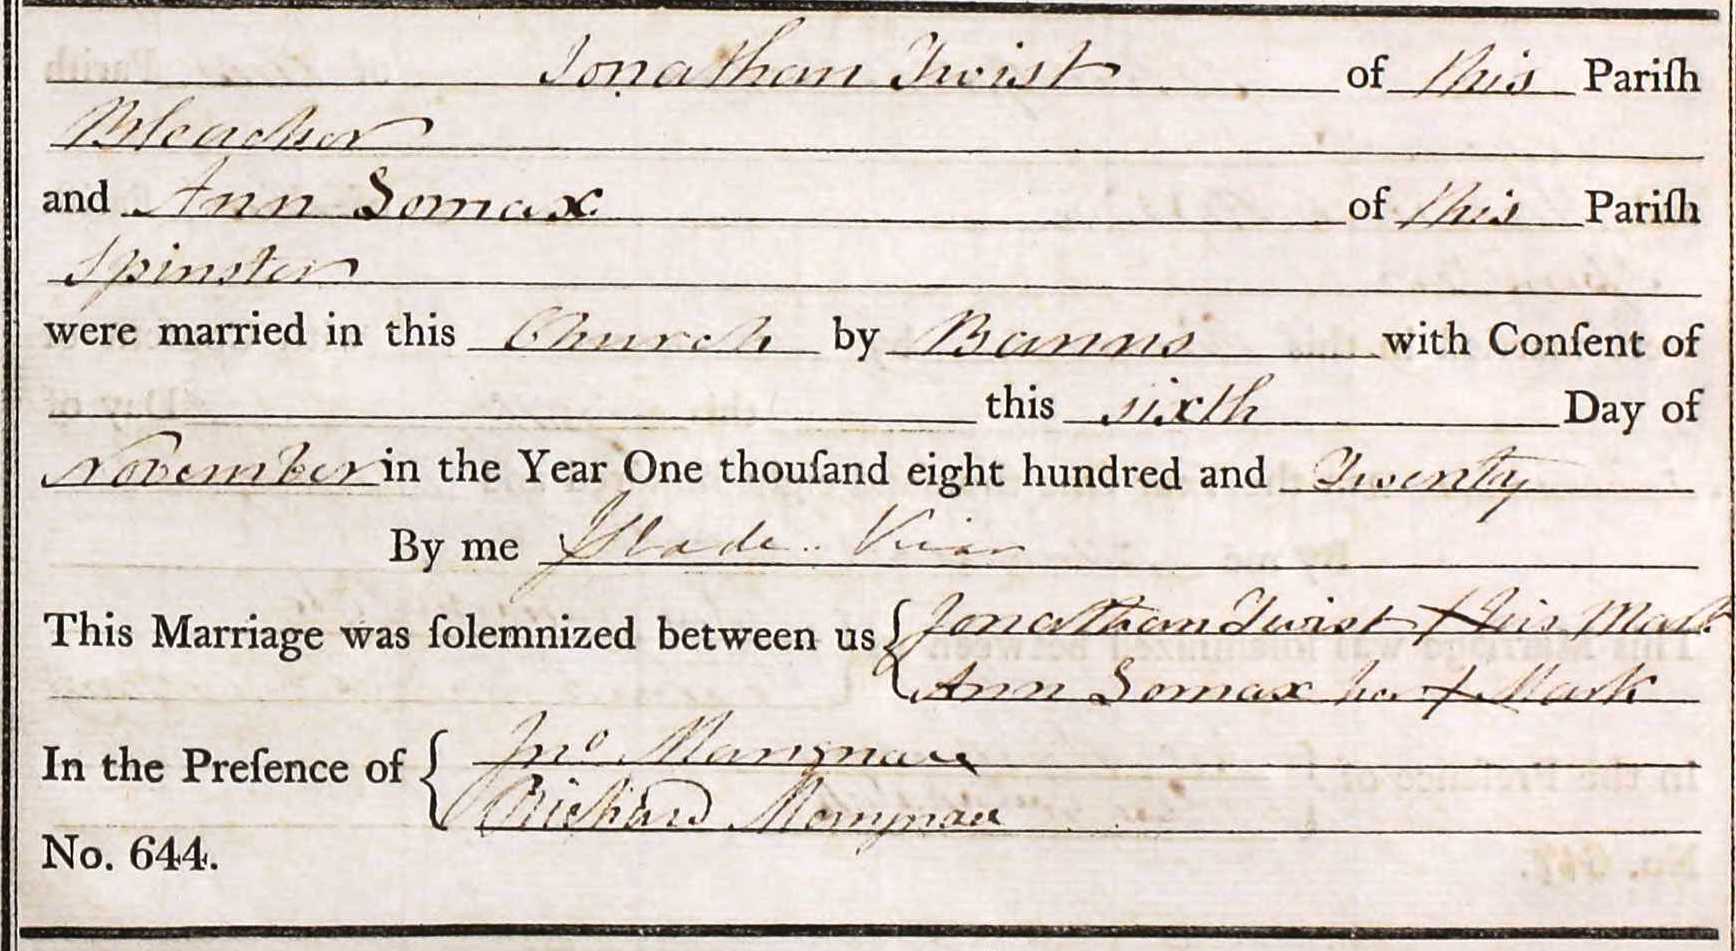 Jonathan Twist of this Pariſh
Bleacher
and Ann Lomax of this Pariſh
Spinster
were married in this Church by Banns with Conſent of
this sixth Day of
November in the Year One thouſand eight hundred and Twenty
By me J Slade Vicar
This Marriage was ſolemnized between us { Jonathan Twist X his Mark
Ann Lomax her X Mark
In the Preſence of { Jno
Richard
No. 644.